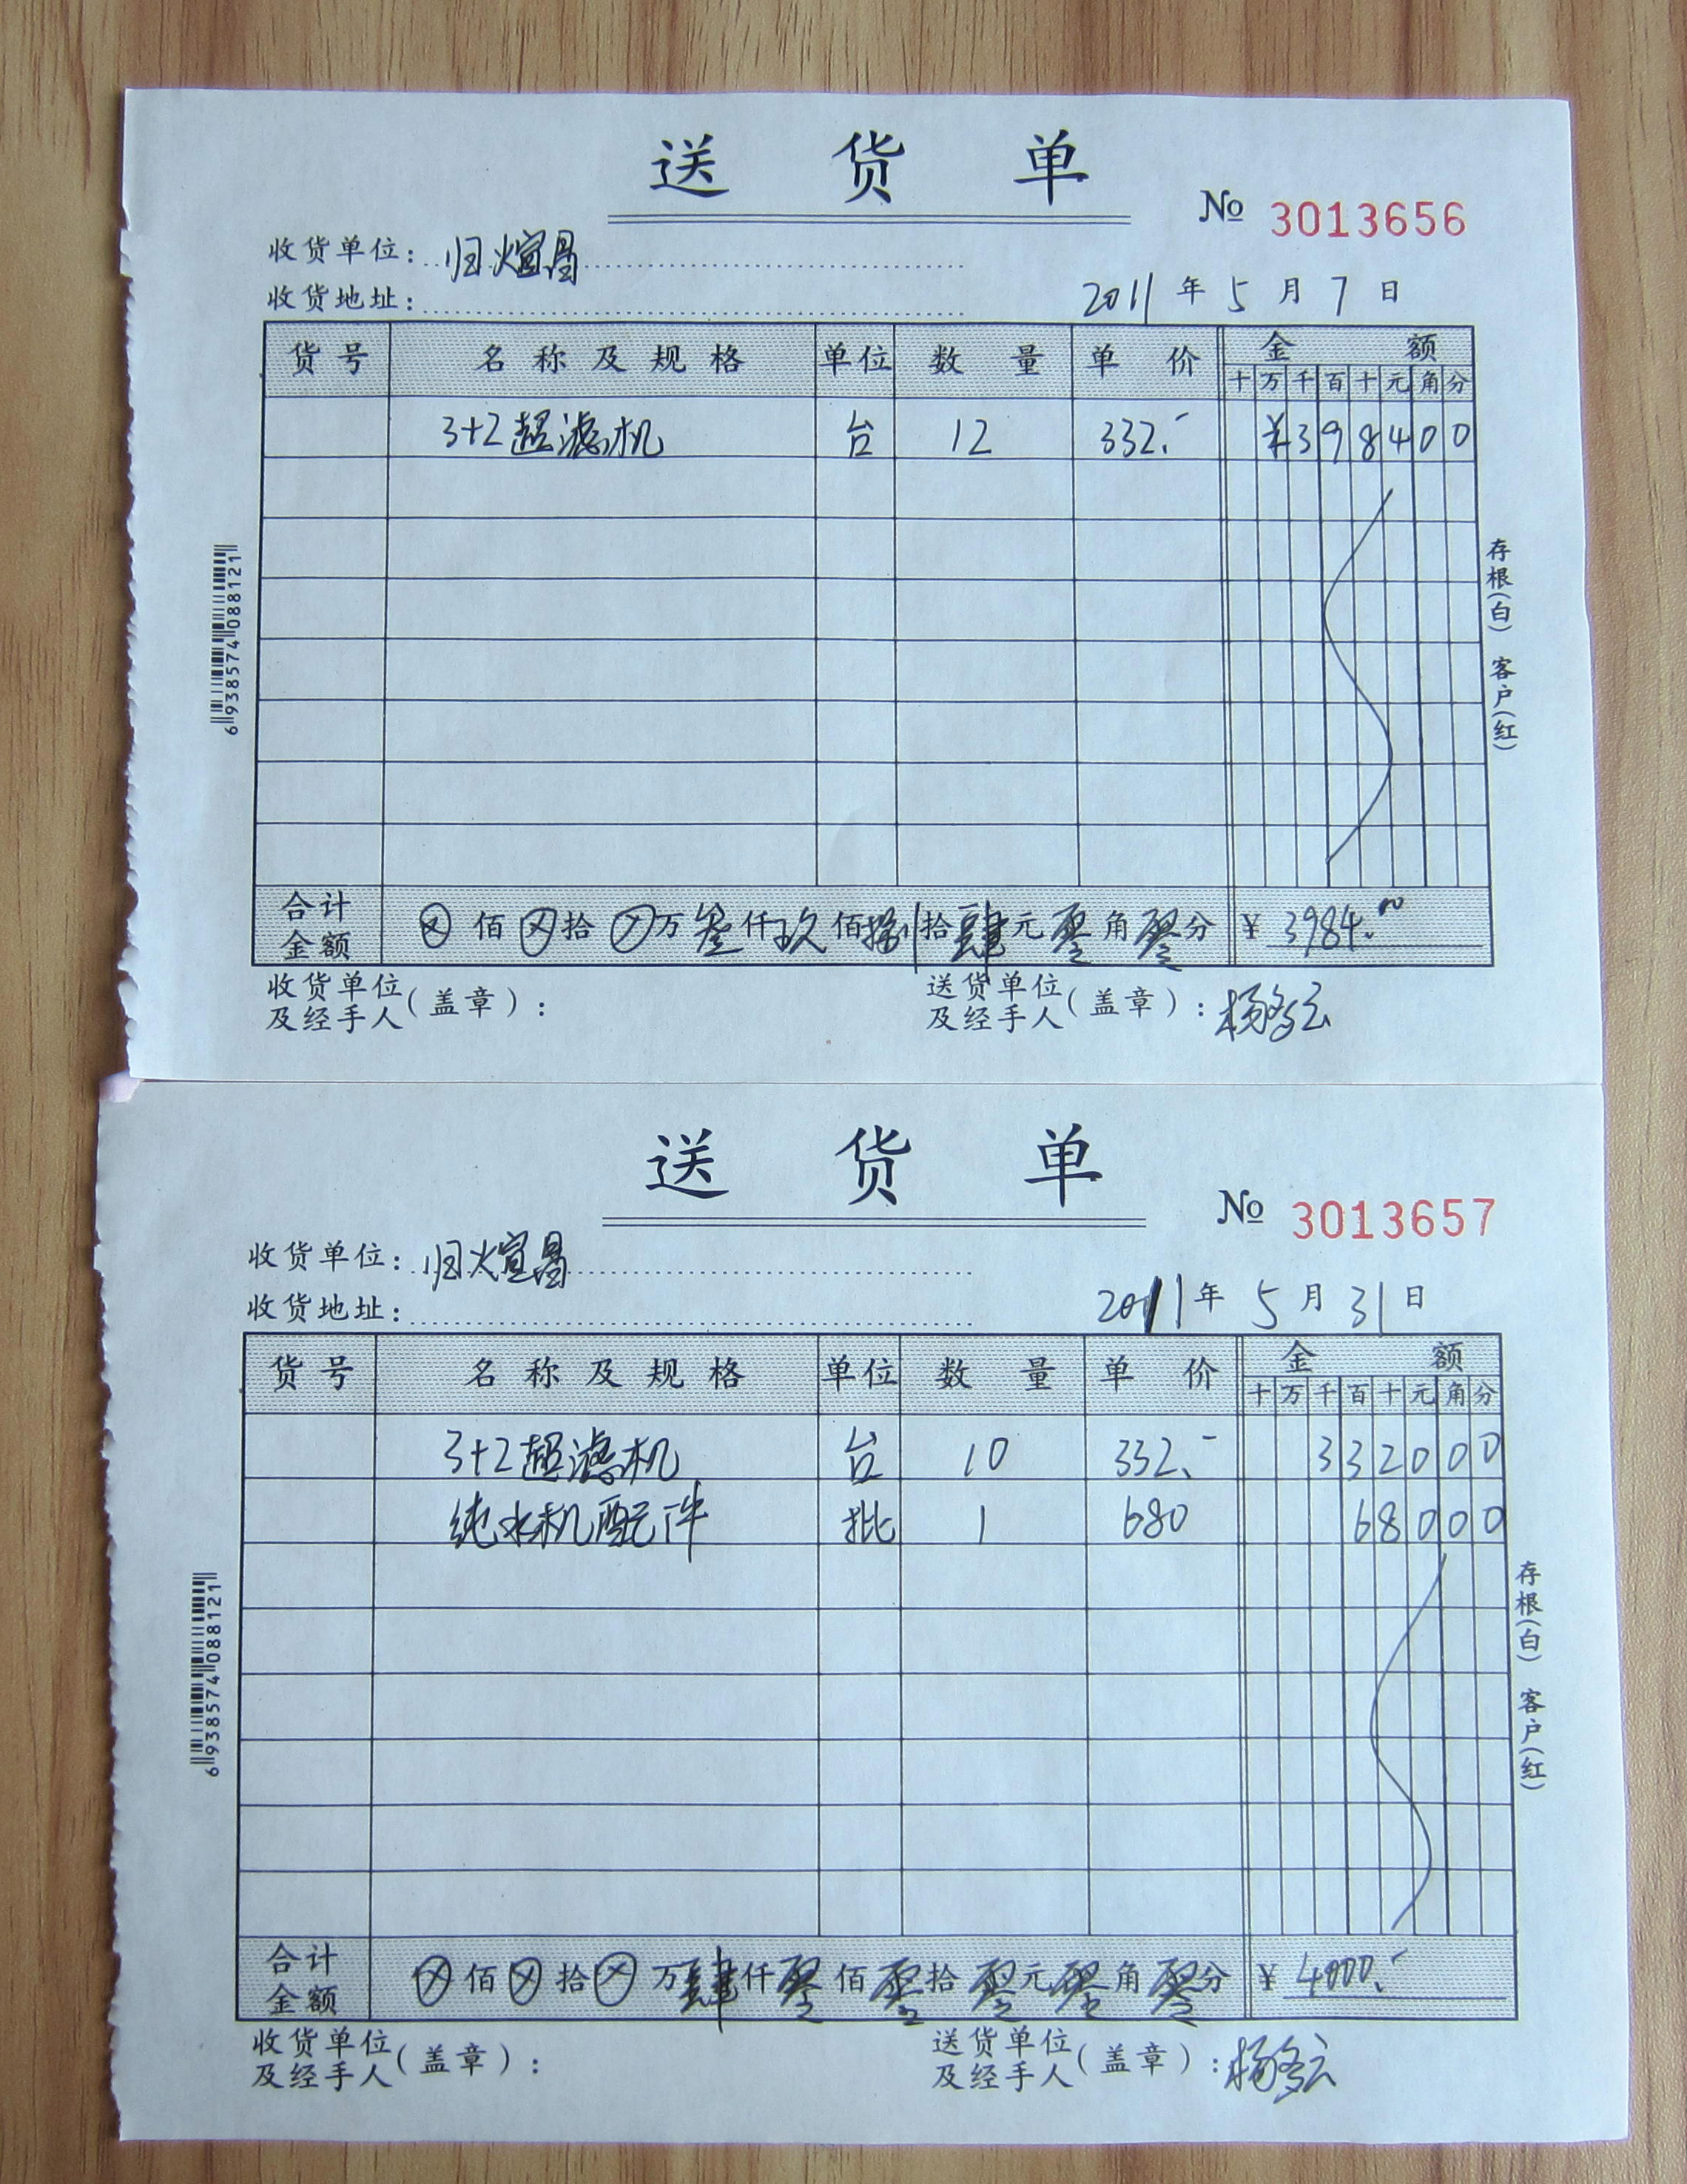 送 货 单
№ 3013656
收货单位: 归煊昌
收货地址:
2011 年 5 月 7 日
货号 名称及规格 单位 数量 单价 金额
十 万 千 百 十 元 角 分
3+2超滤机 台 12 332.- ¥398400
存根(白) 客户(红)
6938574088121
合计金额 ⊗佰⊗拾⊗万叁仟玖佰捌拾肆元零角零分 ¥ 3984.00
收货单位及经手人(盖章): 送货单位及经手人(盖章):
送 货 单
№ 3013657
收货单位: 归煊昌
收货地址:
2011 年 5 月 31 日
货号 名称及规格 单位 数量 单价 金额
十 万 千 百 十 元 角 分
3+2超滤机 台 10 332.- 332000
纯水机配件 批 1 680 68000
存根(白) 客户(红)
6938574088121
合计金额 ⊗佰⊗拾⊗万肆仟零佰零拾零元零角零分 ¥ 4000.-
收货单位及经手人(盖章): 送货单位及经手人(盖章):